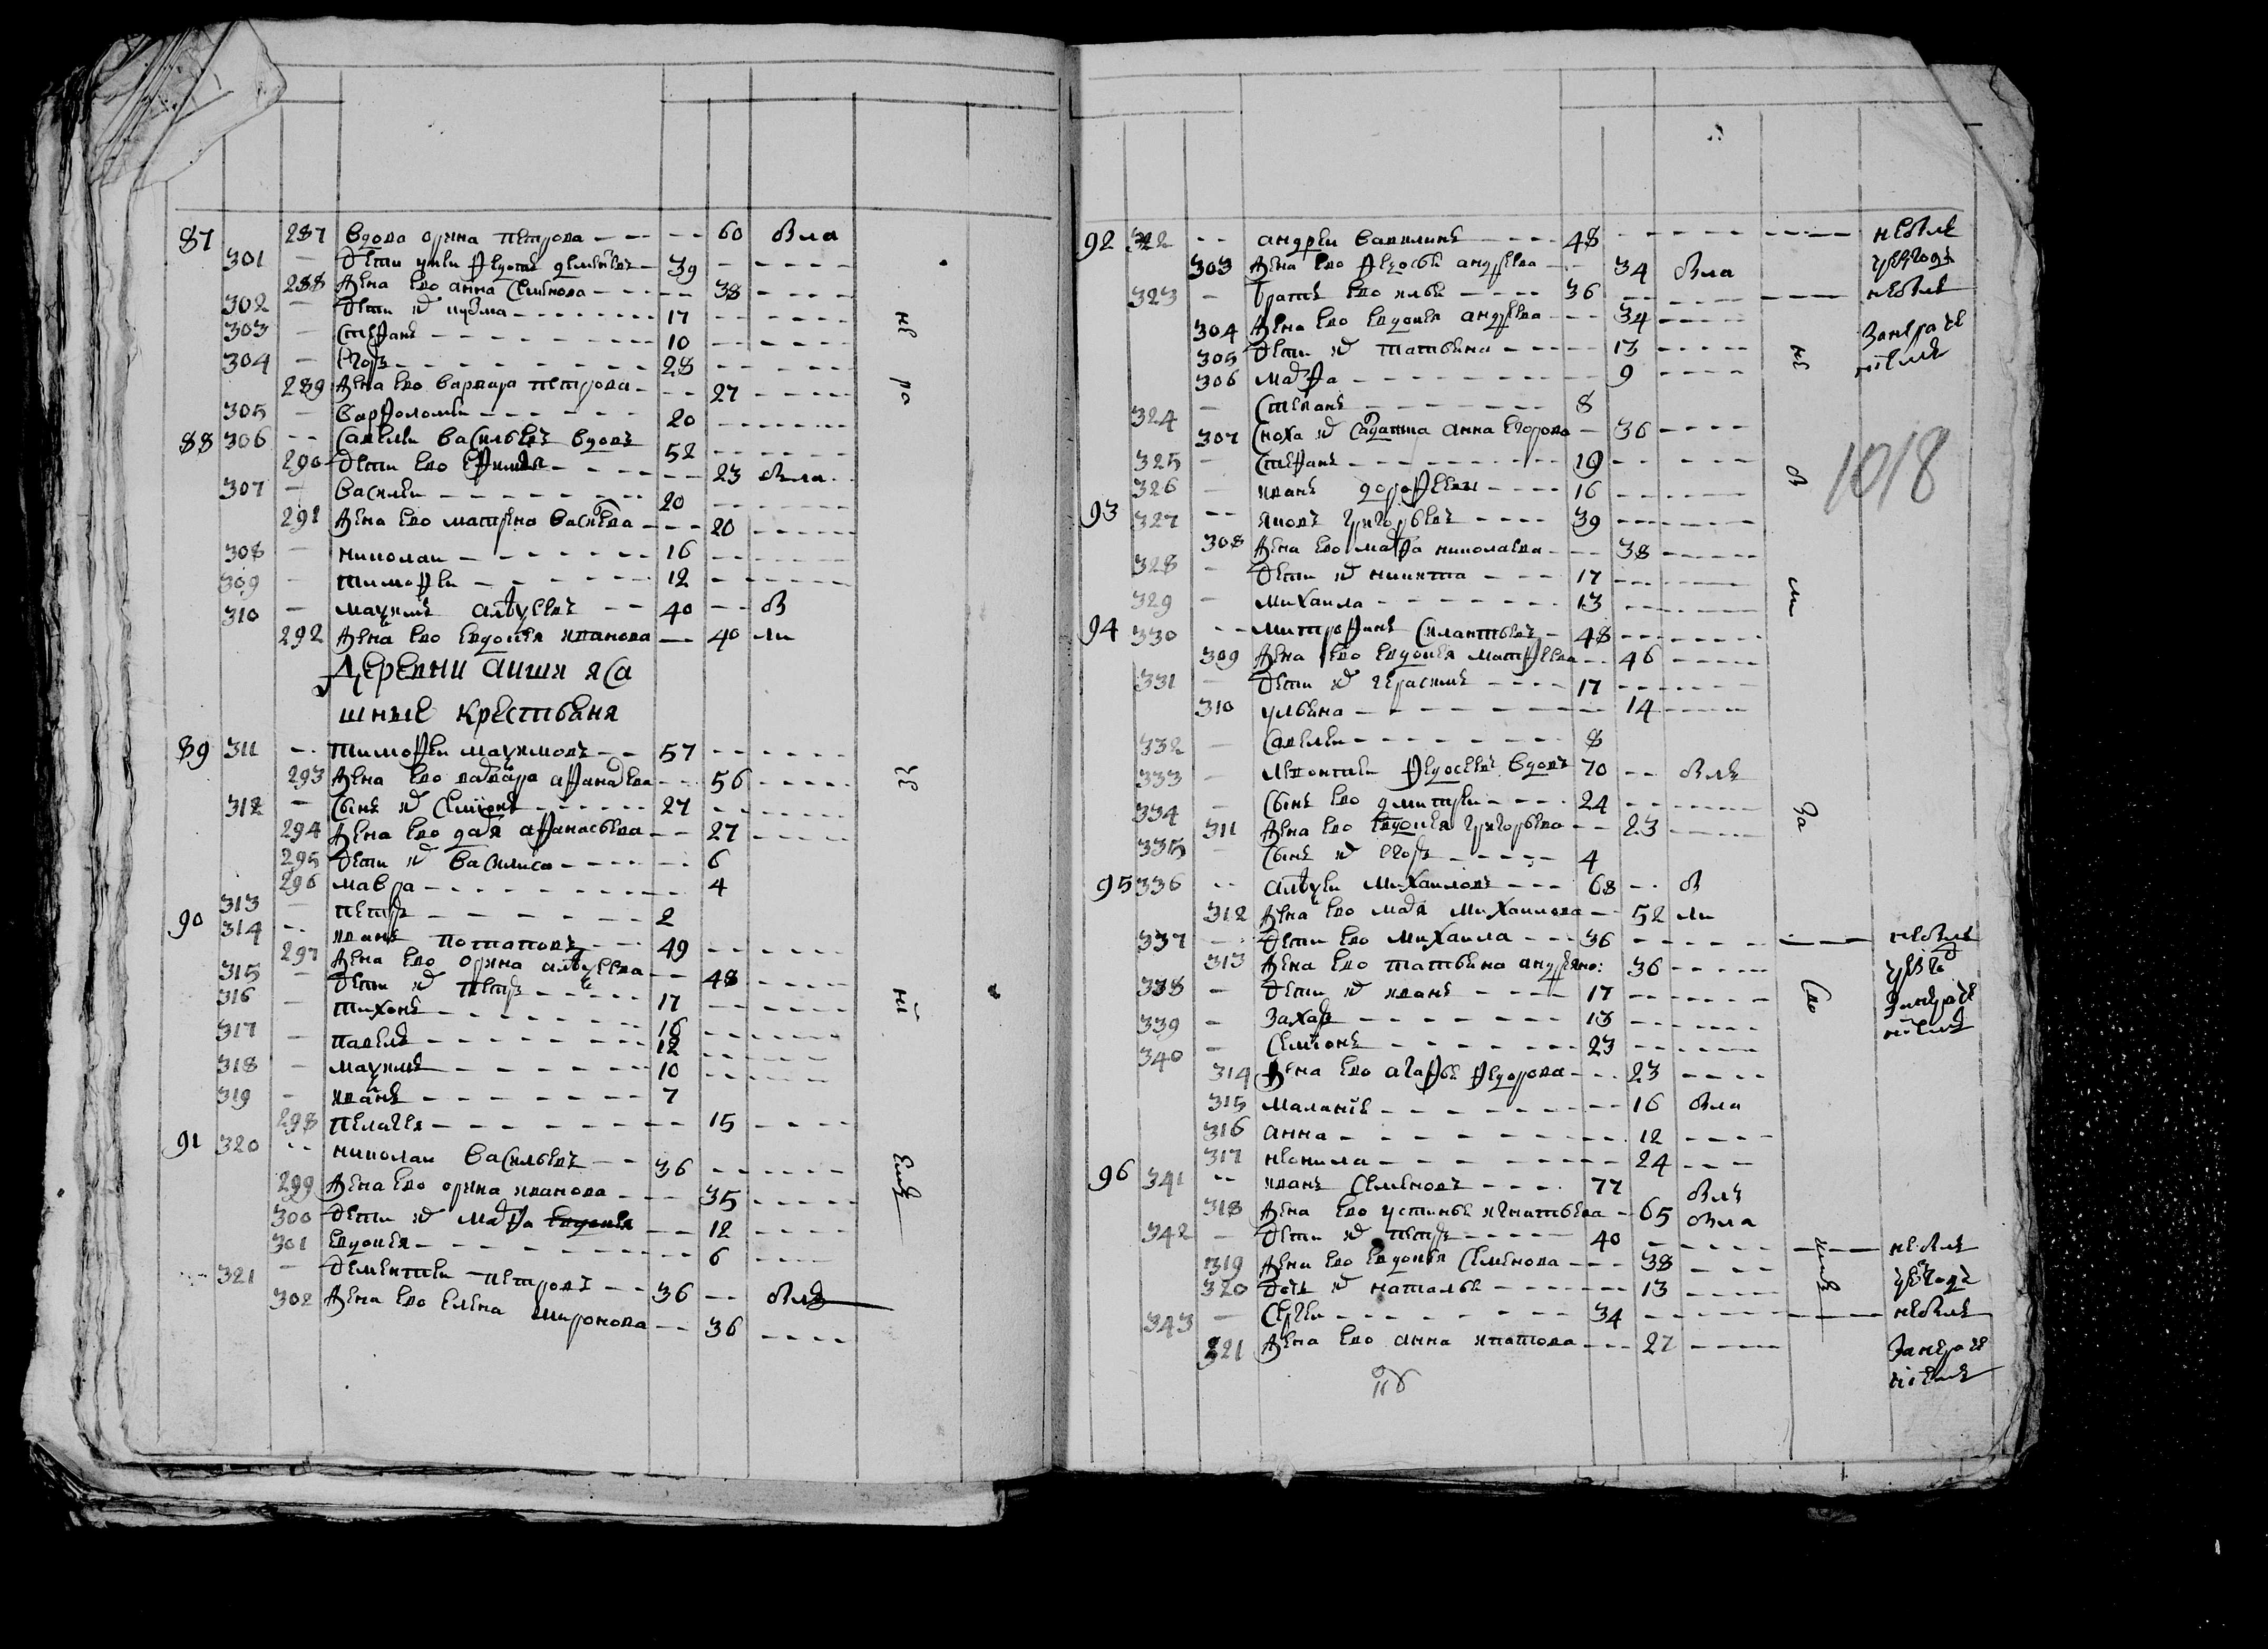 87 287 вдова орина петрова 60 была
301 дети ушки федотъ дементьевъ 39
288 жена ево анна семенова 38
302 дети их кузма 17
303 стефанъ 10
304 егоръ 28
289 жена ево варвара петрова 27
305 варфоломеи 20
88 306 савелеи васильевъ вдовъ 52
290 дети ево 23 была
307 василеи 20
291 жена ево матрена васильева 20
308 николаи 16
309 тимофеи 12
310 максимъ алексеевъ 40 бы
292 жена ево евдокия иванова 40 ли
деревни аиши яса
шные крестьяня
89 311 тимофеи максимовъ 57
293 жена ево варвара афанасьева 56
312 сынъ их семионъ 27
294 жена ево дарья афанасьева 27
295 дети их василиса 6
296 мавра 4
313 петръ 2
90 314 иванъ потаповъ 49
297 жена ево орина алексеева 48
315 дети их петръ 17
316 тихонъ 16
317 павелъ 12
318 максимъ 10
319 иванъ 7
298 пелагея 15
91 320 николаи васильевъ 36
299 жена ево орина иванова 35
300 дети их марфа евдокия 12
301 евдокия 6
321 дементеи петровъ 36 былъ
302 жена ево елена миронова 36
92 322 андреи вавилинъ 48 небылъ
303 жена ево федосья андреева 34 была
323 братъ ево илья 36 небылъ
304 жена ево евдокия андреева 34
305 дети их татьяна 13
306 марфа 9
324 степанъ 8
307 сноха их салдатка анна егорова 36
1018
325 стефанъ 19
326 иванъ дорофеевъ 16
93 327 яковъ григорьевъ 39
308 жена ево марфа николаева 38
328 дети их никита 17
329 михаила 13
94 330 митрофанъ силантьевъ 48
309 жена ево евдокия матфеева 46
331 дети их герасимъ 17
310 ульяна 14
332 савелеи 8
333 леонтеи федосеевъ вдовъ 70 былъ
334 сынъ ево дмитреи 24
311 жена ево евдокия григорьева 23
335 сынъ их егоръ 4
95 336 алексеи михаиловъ 68 бы
312 жена ево марья михаилова 52 ли
337 дети ево михаила 36 небылъ
313 жена ево татьяна андреяно: 36
338 дети их иванъ 17
339 захаръ 13
340 семионъ 23
314 жена ево агафья федорова 23
315 маланья 16 была
316 анна 12
317 неонила 24
96 341 иванъ семеновъ 77 былъ
318 жена ево устинья игнатьева 65 была
342 дети их петръ 40 небылъ
319 жена ево евдокия семенова 38
320 дочь их наталья 13
343 сергеи 34 небылъ
321 жена ево анна ипатова 27